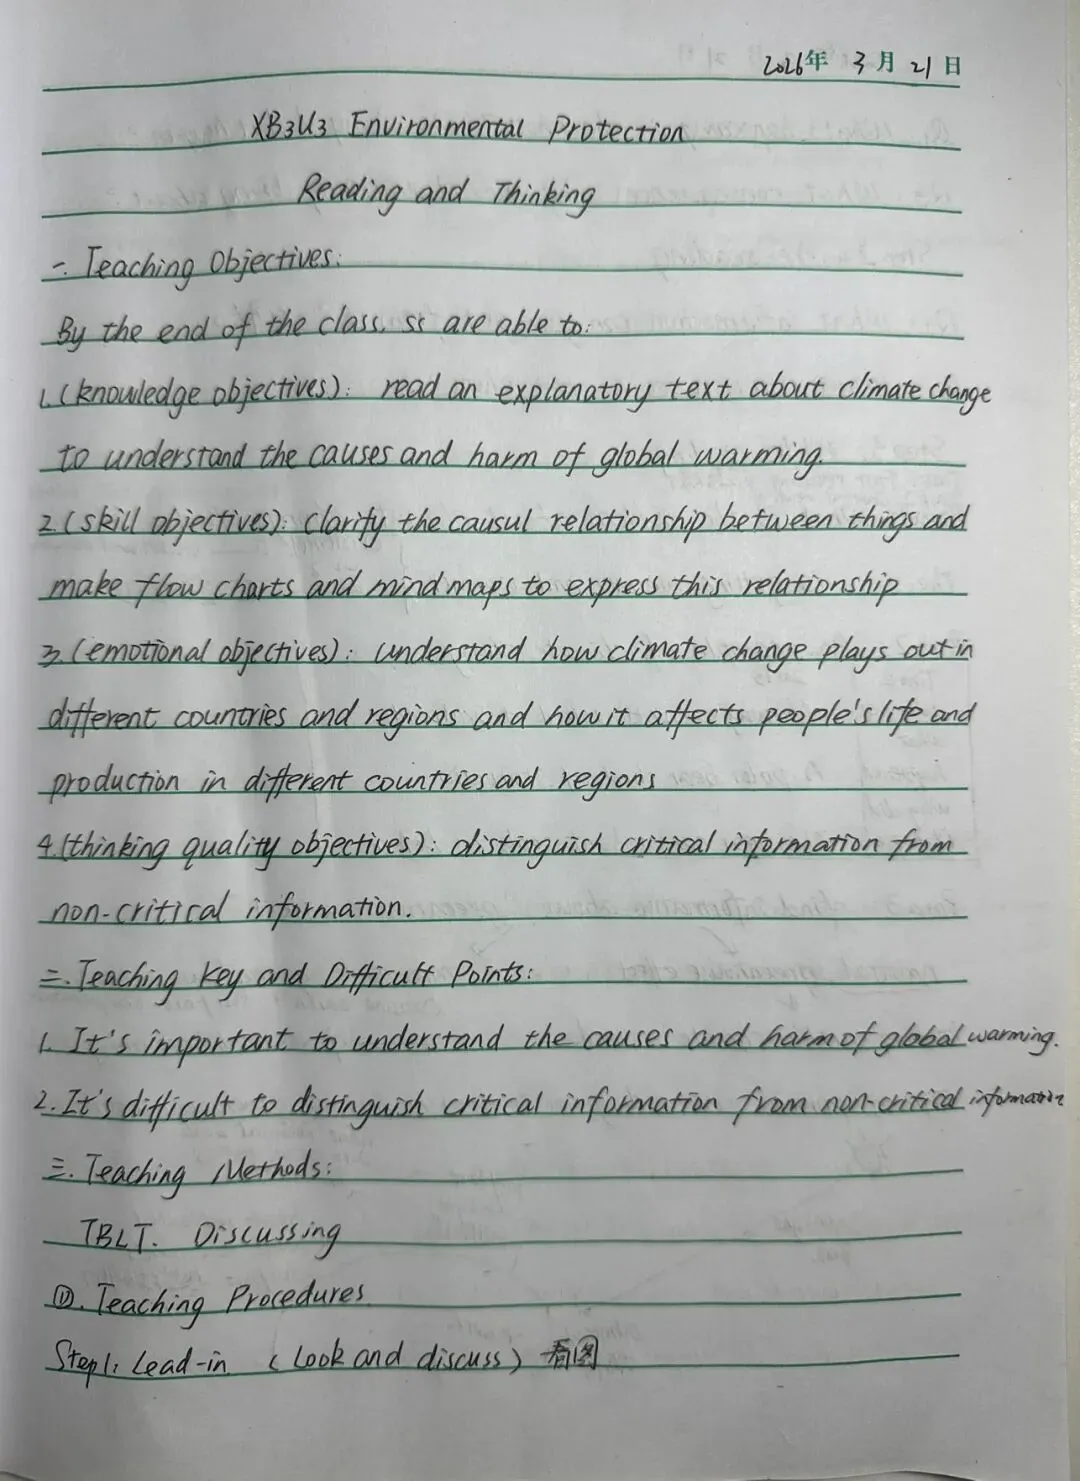 2026年 3月 21日
XB3U3 Environmental Protection
Reading and Thinking
一. Teaching Objectives:
By the end of the class. ss are able to:
1. (knowledge objectives): read an explanatory text about climate change
to understand the causes and harm of global warming.
2 (skill objectives): clarify the causul relationship between things and
make flow charts and mind maps to express this relationship
3. (emotional objectives): understand how climate change plays out in
different countries and regions and how it affects people's life and
production in different countries and regions
4. (thinking quality objectives): distinguish critical information from
non-critical information.
二. Teaching Key and Difficult Points:
1. It's important to understand the causes and harm of global warming.
2. It's difficult to distinguish critical information from non-critical information
三. Teaching Methods:
TBLT. Discussing
四. Teaching Procedures
Step1: Lead-in (Look and discuss) 看图